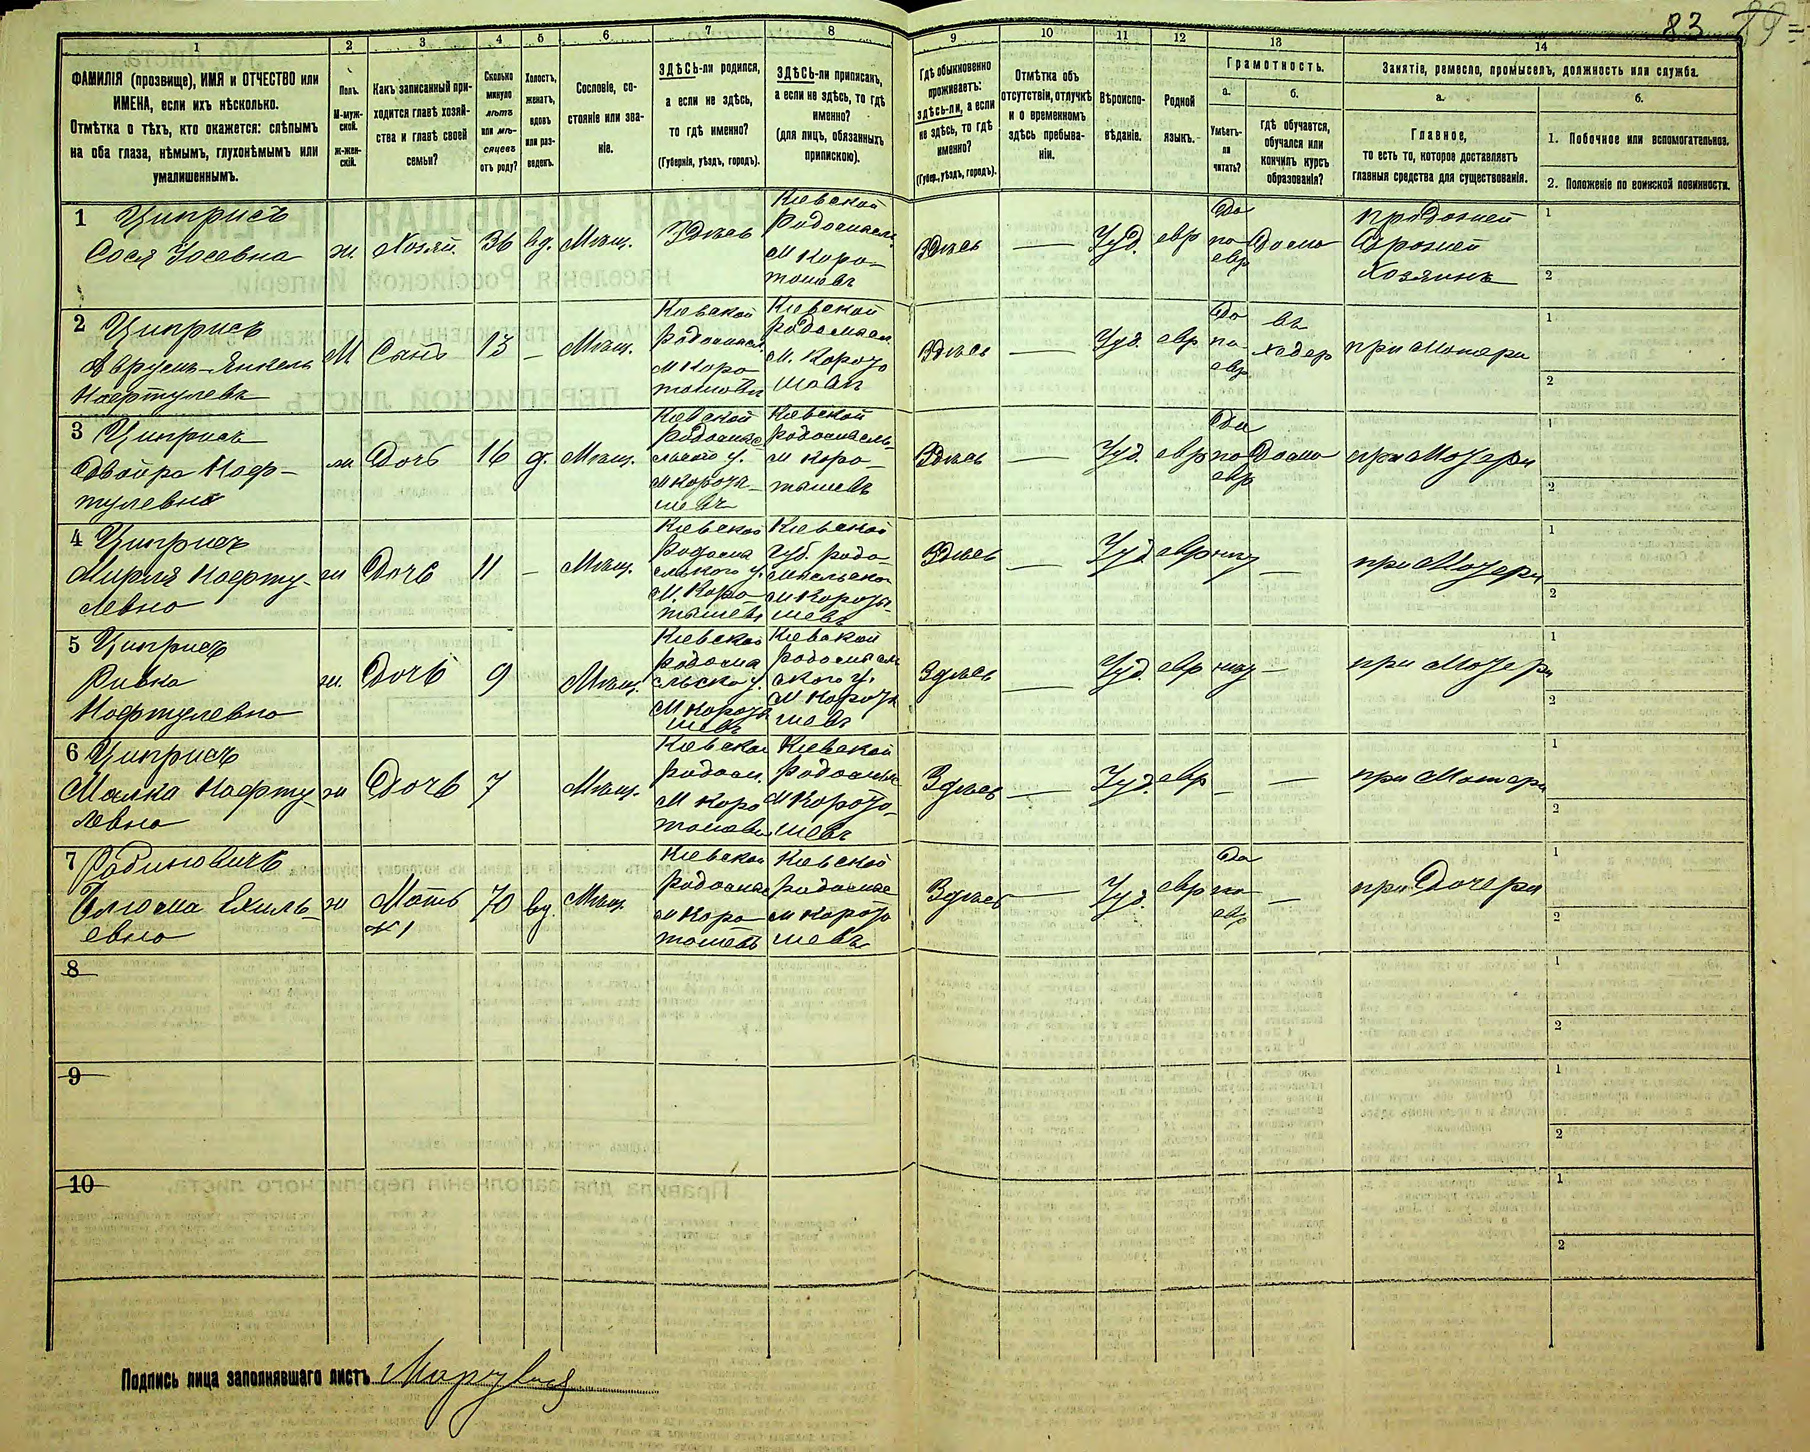 83 89
1 2 3 4 5 6 7 8 9 10 11 12 13 14
ФАМИЛІЯ (прозвище), ИМЯ и ОТЧЕСТВО или
ИМЕНА, если ихъ нѣсколько.
Отмѣтка о тѣхъ, кто окажется: слѣпымъ
на оба глаза, нѣмымъ, глухонѣмымъ или
умалишеннымъ.
Полъ.
М-муж-
ской.
ж-жен-
скій.
Какъ записанный при-
ходится главѣ хозяй-
ства и главѣ своей
семьи?
Сколько
минуло
лѣтъ
или мѣ-
сяцевъ
отъ роду?
Холостъ,
женатъ,
вдовъ
или раз-
веденъ.
Сословіе, со-
стояніе или зва-
ніе.
ЗДѢСЬ-ли родился,
а если не здѣсь,
то гдѣ именно?
(Губернія, уѣздъ, городъ).
ЗДѢСЬ-ли приписанъ,
а если не здѣсь, то гдѣ
именно?
(для лицъ, обязанныхъ
припискою).
Гдѣ обыкновенно
проживаетъ:
здѣсь-ли, а если
не здѣсь, то гдѣ
именно?
(Губер., уѣздъ, городъ).
Отмѣтка объ
отсутствіи, отлучкѣ
и о временномъ
здѣсь пребыва-
ніи.
Вѣроиспо-
вѣданіе.
Родной
языкъ.
Грамотность.
а.
Умѣетъ-
ли
читать?
б.
Гдѣ обучается,
обучался или
кончилъ курсъ
образованія?
Занятіе, ремесло, промыселъ, должность или служба.
а.
Главное,
то есть то, которое доставляетъ
главныя средства для существованія.
б.
1. Побочное или вспомогательное.
2. Положеніе по воинской повинности.
1 Циприсъ
Сося Іосевна
ж Хозяй. 36 вд. Мѣщ. Здѣсь
Кіевской
Радомысл.
м Коро-
тышевъ
Здѣсь — Іуд. евр
Да
по
евр
Дома
Хозяинъ
1
2
2 Циприсъ
Нафтулевъ
М Сынъ 13 — Мѣщ.
Кіевской
Радомысл.
м Коро
Кіевской
Радомысл.
м. Короты
шевъ
Здѣсь — Іуд. евр
Да
по
евр
въ
Хедер
при Матери
1
2
3 Циприсъ
Двойра Наф-
тулевна
ж Дочь 16 д. Мѣщ.
Кіевской
Радомы-
льского у.
м Короты-
шевъ
Кіевской
Радомысль-
м Коро-
тышевъ
Здѣсь — Іуд. евр
Да
по
евр
Дома
при Матери
1
2
4 Циприсъ
Мирля Нафту-
левна
ж Дочь 11 — Мѣщ.
Кіевской
Радомы
сльского у.
м. Коро-
тышевъ
Кіевской
Губ. Радо-
мысльско
м Короты-
шевъ
Здѣсь — Іуд евр нѣт —
при Матери
1
2
5 Циприсъ
Ривка
Нафтулевна
ж. Дочь 9 Мѣщ.
Кіевской
Радомы
сльско у.
м Короты
шевъ
Кіевской
Радомысль
ского у.
м Короты
шевъ
Здѣсь — Іуд. евр нѣт —
при Матери
1
2
6 Циприсъ
Малка Нафту-
левна
ж Дочь 7 Мѣщ.
Кіевской
Радомы.
м Коро
Кіевской
Радомысль
м Короты-
шевъ
Здѣсь — Іуд. евр — —
при Матери
1
2
7 Рабиновичъ
Блюма Ехиль-
евна
ж Мать
№ 1
70 вд. Мѣщ
Кіевской
Радомы
м Коро
тышевъ
Кіевской
Радомыс
м Короты
шевъ
Здѣсь — Іуд. евр
Да
по
евр
—
при Дочери
1
2
8
1
2
9
1
2
10
1
2
Подпись лица заполнявшаго листъ